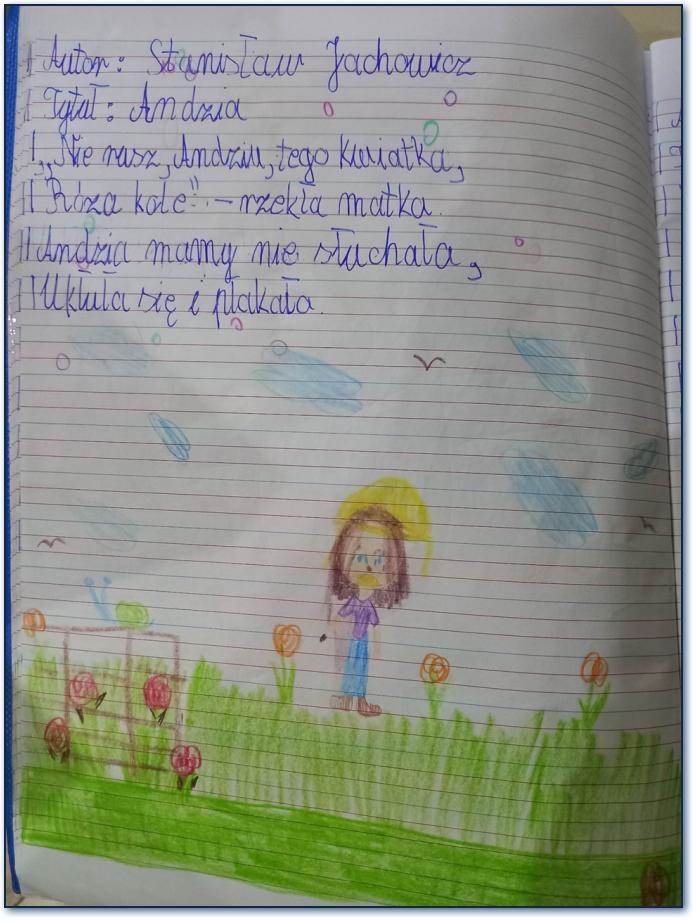 Autor: Stanisław Jachowicz
Tytuł: Andzia
„Nie rusz, Andziu, tego kwiatka,
Róża kole" – rzekła matka.
Andzia mamy nie słuchała,
Ukłuła się i płakała.